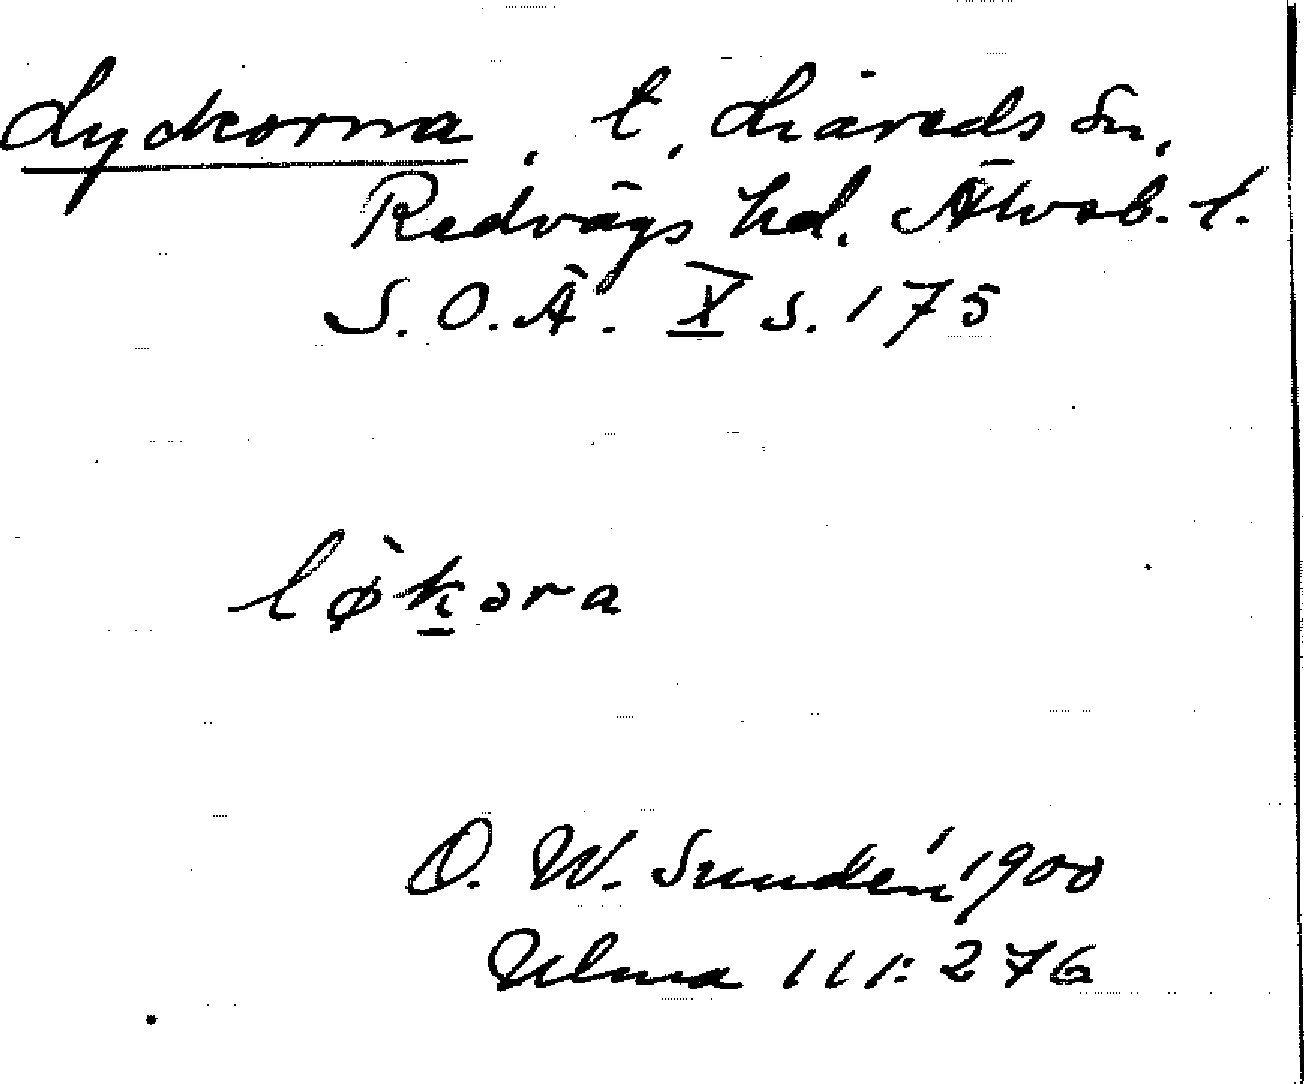 Lyckorna, t, Liareds sn,
Redvägs hd. Älvsb. l.
S.O.Ä. X s. 175
lø̀k̠əra
O. W. Sundén 1900
Ulma 111:276